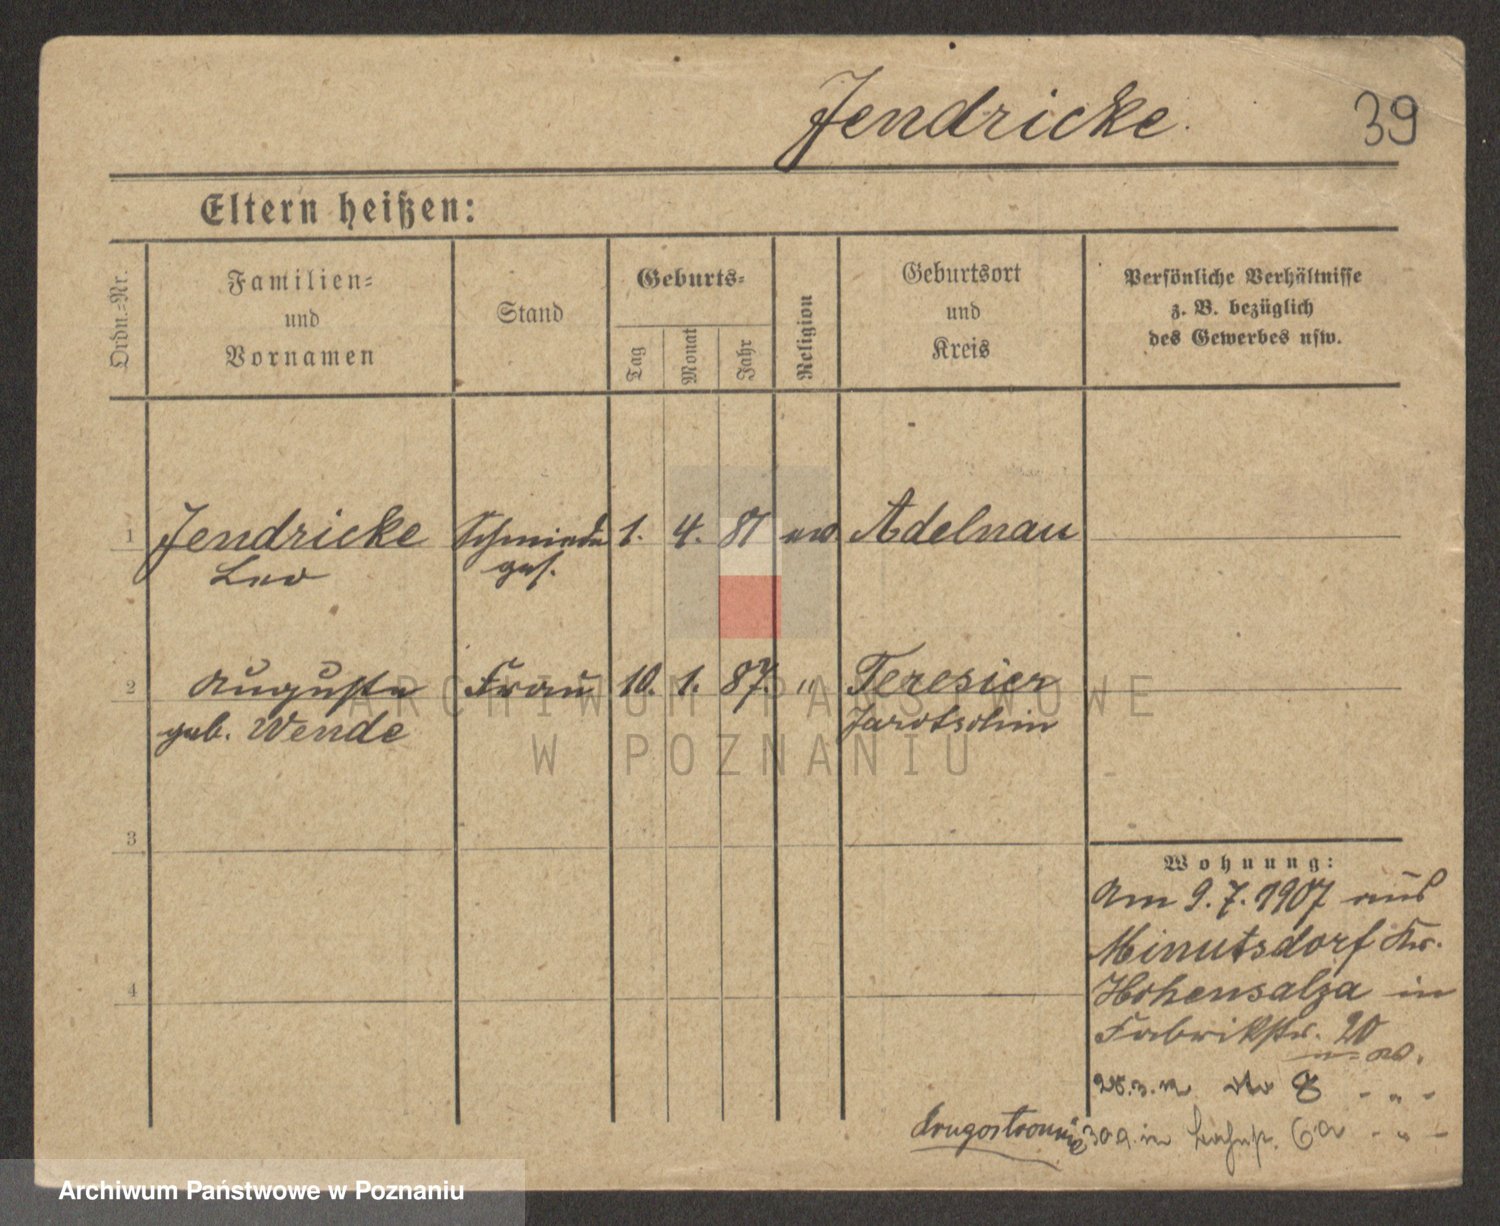 Jendricke.
39
Eltern heißen:
Ordn.-Nr.
Familien-
und
Vornamen
Stand
Geburts-
Tag
Monat
Jahr
Religion
Geburtsort
und
Kreis
Persönliche Verhältnisse
z. B. bezüglich
des Gewerbes usw.
1 Jendricke Schmiede 1. 4. 81 ev Adelnau
Leo ges.
2 Auguste Frau 10. 1. 87. " Teresier
geb. Wende Jarotschin
3
4
Wohnung:
Am 9. 7. 1907 aus
Minutsdorf Kr.
Hohensalza in
Fabrikstr. 20
8 - " -
drugostronnie 6a - " -
ARCHIWUM PAŃSTWOWE
W POZNANIU
Archiwum Państwowe w Poznaniu